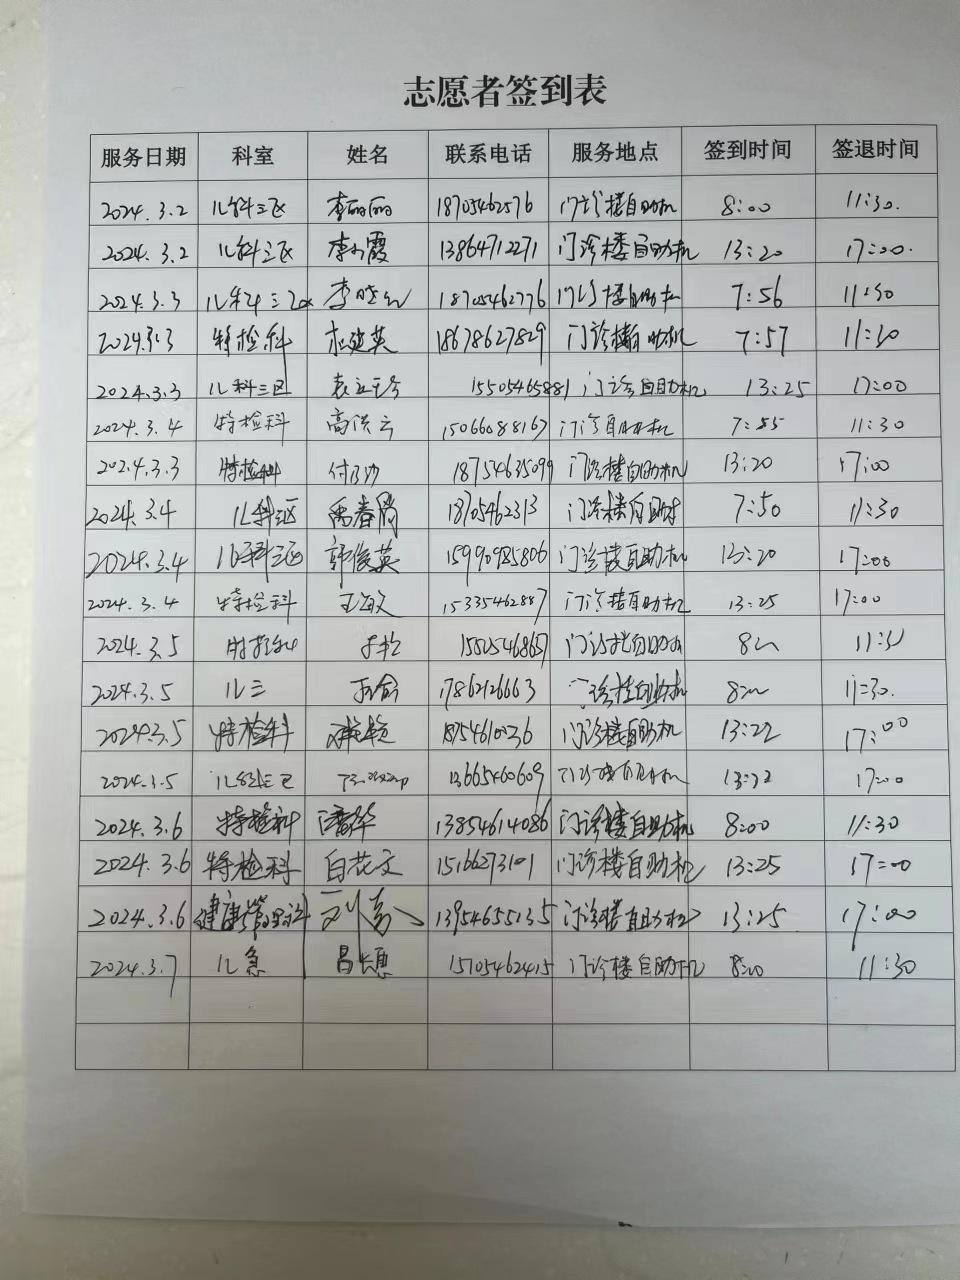 志愿者签到表
服务日期 科室 姓名 联系电话 服务地点 签到时间 签退时间
2024.3.2 儿科三区 李丽丽 18705462576 门诊楼自助机 8:00 11:30.
2024.3.2 儿科三区 李小霞 13864712271 门诊楼自助机 13:20 17:00.
2024.3.3 儿科三区 李晓 18705462776 门诊楼自助机 7:56 11:30
2024.3.3 特检科 杜建英 18678627829 门诊楼自助机 7:57 11:30
2024.3.3 儿科三区 袁 15505465881 门诊自助机 13:25 17:00
2024.3.4 特检科 高洪云 15066088167 门诊自助机 7:55 11:30
2024.3.3 特检科 付 18754635099 门诊楼自助机 13:20 17:00
2024.3.4 儿科三区 禹春 18705462313 门诊楼自助机 7:50 11:30
2024.3.4 儿科三区 郭俊英 15990985806 门诊楼自助机 13:20 17:00
2024.3.4 特检科 王敏 15335462887 门诊楼自助机 13:25 17:00
2024.3.5 门诊楼自助机 11:30
2024.3.5 儿三 17862126663 门诊楼自助机 8:00 11:30.
2024.3.5 特检科 18754610236 门诊楼自助机 13:22 17:00
2024.3.5 儿科三区 13665460609 门诊楼自助机 13:22 17:00
2024.3.6 特检科 潘华 13854614086 门诊楼自助机 8:00 11:30
2024.3.6 特检科 白花文 15166273101 门诊楼自助机 13:25 17:00
2024.3.6 健康管理科 刘 13954655135 门诊楼自助机 13:25 17:00
2024.3.7 儿急 15105462415 门诊楼自助机 8:00 11:30